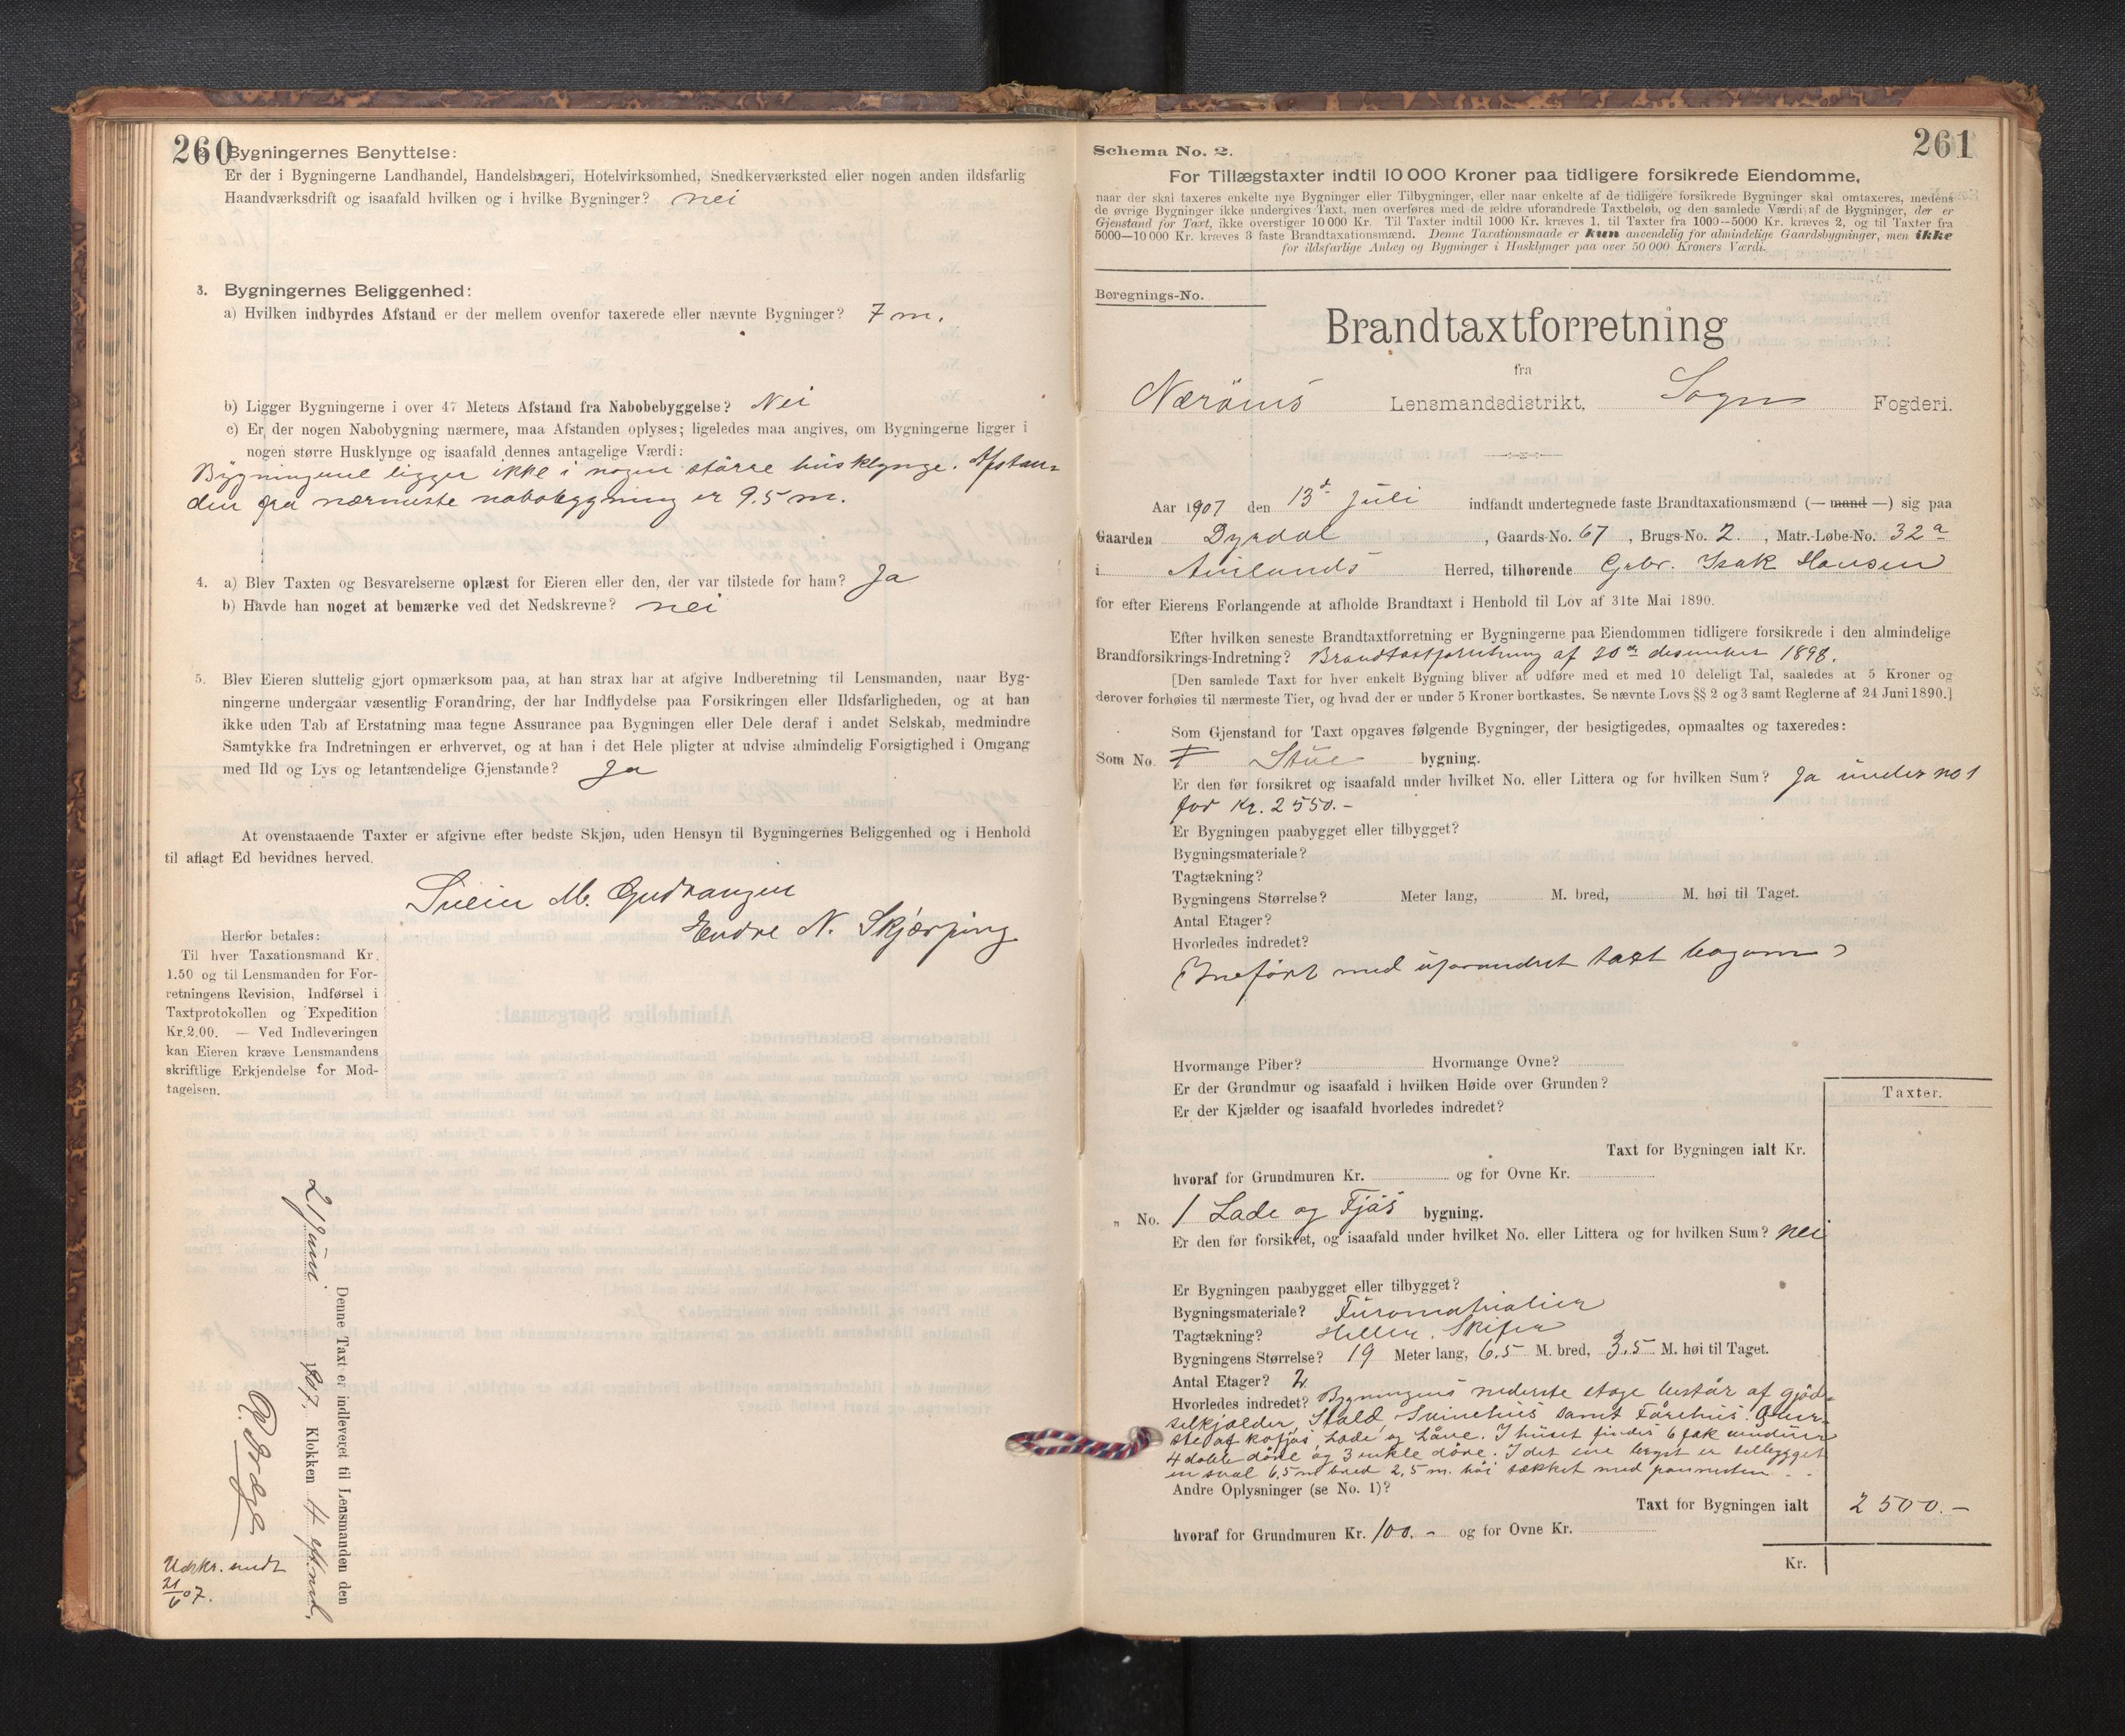 260
Bygningernes Benyttelse:
Er der i Bygningerne Landhandel, Handelsbageri, Hotelvirksomhed, Snedkerværksted eller nogen anden ildsfarlig
Haandværksdrift og isaafald hvilken og i hvilke Bygninger? nei
3. Bygningernes Beliggenhed:
a) Hvilken indbyrdes Afstand er der mellem ovenfor taxerede eller nævnte Bygninger? 7 m.
b) Ligger Bygningerne i over 47 Meters Afstand fra Nabobebyggelse? Nei
c) Er der nogen Nabobygning nærmere, maa Afstanden oplyses; ligeledes maa angives, om Bygningerne ligger i
nogen større Husklynge og isaafald dennes antagelige Værdi:
Bygningene ligger ikke i nogen større husklynge. Afstan-
den fra nærmeste nabobygning er 9.5 m.
4. a) Blev Taxten og Besvarelserne oplæst for Eieren eller den, der var tilstede for ham? Ja
b) Havde han noget at bemærke ved det Nedskrevne? nei
5. Blev Eieren sluttelig gjort opmærksom paa, at han strax har at afgive Indberetning til Lensmanden, naar Byg-
ningerne undergaar væsentlig Forandring, der har Indflydelse paa Forsikringen eller Ildsfarligheden, og at han
ikke uden Tab af Erstatning maa tegne Assurance paa Bygningen eller Dele deraf i andet Selskab, medmindre
Samtykke fra Indretningen er erhvervet, og at han i det Hele pligter at udvise almindelig Forsigtighed i Omgang
med Ild og Lys og letantændelige Gjenstande? Ja
At ovenstaaende Taxter er afgivne efter bedste Skjøn, uden Hensyn til Bygningernes Beliggenhed og i Henhold
til aflagt Ed bevidnes herved.
Svein M. Gudvangen
Endre N. Skjerping
Herfor betales:
Til hver Taxationsmand Kr.
1.50 og til Lensmanden for For-
retningens Revision, Indførsel i
Taxtprotokollen og Expedition
Kr. 2.00. — Ved Indleveringen
kan Eieren kræve Lensmandens
skriftlige Erkjendelse for Mod-
tagelsen.
Denne Taxt er indleveret til Lensmanden den
21 Juni 1907, Klokken 4 eftmd.
Udskr. sendt
21/6 07.
261
Schema No. 2.
For Tillægstaxter indtil 10 000 Kroner paa tidligere forsikrede Eiendomme,
naar der skal taxeres enkelte nye Bygninger eller Tilbygninger, eller naar enkelte af de tidligere forsikrede Bygninger skal omtaxeres, medens
de øvrige Bygninger ikke undergives Taxt, men overføres med de ældre uforandrede Taxtbeløb, og den samlede Værdi af de Bygninger, der er
Gjenstand for Taxt, ikke overstiger 10 000 Kr. Til Taxter indtil 1000 Kr. kræves 1, til Taxter fra 1000—5000 Kr. kræves 2, og til Taxter fra
5000—10 000 Kr. kræves 3 faste Brandtaxationsmænd. Denne Taxationsmaade er kun anvendelig for almindelige Gaardsbygninger, men ikke
for ildsfarlige Anlæg og Bygninger i Husklynger paa over 50 000 Kroners Værdi.
Beregnings-No.
Brandtaxtforretning
fra
Nærøens Lensmandsdistrikt, Sogn Fogderi.
Aar 1907 den 13de Juli indfandt undertegnede faste Brandtaxationsmænd (— mand —) sig paa
Gaarden Dyrdal, Gaards-No. 67, Brugs-No. 2., Matr.-Løbe-No. 32a
i Aurlands Herred, tilhørende Grbr. Isak Hansen
for efter Eierens Forlangende at afholde Brandtaxt i Henhold til Lov af 31te Mai 1890.
Efter hvilken seneste Brandtaxtforretning er Bygningerne paa Eiendommen tidligere forsikrede i den almindelige
Brandforsikrings-Indretning? Brandtaxtforretning af 20de desember 1898.
[Den samlede Taxt for hver enkelt Bygning bliver at udføre med et med 10 deleligt Tal, saaledes at 5 Kroner og
derover forhøies til nærmeste Tier, og hvad der er under 5 Kroner bortkastes. Se nævnte Lovs §§ 2 og 3 samt Reglerne af 24 Juni 1890.]
Som Gjenstand for Taxt opgaves følgende Bygninger, der besigtigedes, opmaaltes og taxeredes:
Som No. Stue bygning.
Er den før forsikret og isaafald under hvilket No. eller Littera og for hvilken Sum? Ja under no 1
for Kr. 2550.-
Er Bygningen paabygget eller tilbygget?
Bygningsmateriale?
Tagtækning?
Bygningens Størrelse? Meter lang, M. bred, M. høi til Taget.
Antal Etager?
Hvorledes indredet?
(Indført med uforandret taxt bagom)
Hvormange Piber? Hvormange Ovne?
Er der Grundmur og isaafald i hvilken Høide over Grunden?
Er der Kjælder og isaafald hvorledes indredet?
Taxter.
Taxt for Bygningen ialt Kr.
hvoraf for Grundmuren Kr. og for Ovne Kr.
" No. 1 Lade og Fjøs bygning.
Er den før forsikret, og isaafald under hvilket No. eller Littera og for hvilken Sum? nei
Er Bygningen paabygget eller tilbygget?
Bygningsmateriale? Furomaterialier
Tagtækning? Heller. Skifer
Bygningens Størrelse? 19 Meter lang, 6.5 M. bred, 3.5 M. høi til Taget.
Antal Etager? 2
Hvorledes indredet? Bygningens nederste etage består af gjød-
selkjælder, Stald, Svinehus samt Fårehus. Øver-
ste af kofjøs, Lade og Låve. I huset findes 6 fak vinduer
4 doble døre og 3 enkle døre. I det ene er tilbygget
en sval 6,5 m bred 2,5 m. høi tækket med pannesten.
Andre Oplysninger (se No. 1)?
Taxt for Bygningen ialt 2500.-
hvoraf for Grundmuren Kr. 100.- og for Ovne Kr.
Kr.